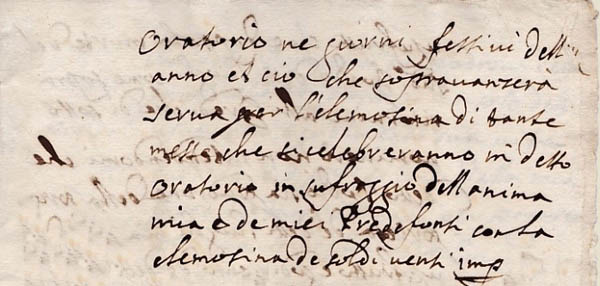 Oratorio ne giorni festivi dell
anno e ciò che sopravanzerà
serva per l'elemosina di tante
messe che si celebreranno in detto
Oratorio in suffraggio dell anima
mia e de miei Predefonti con la
elemosina de soldi venti imp